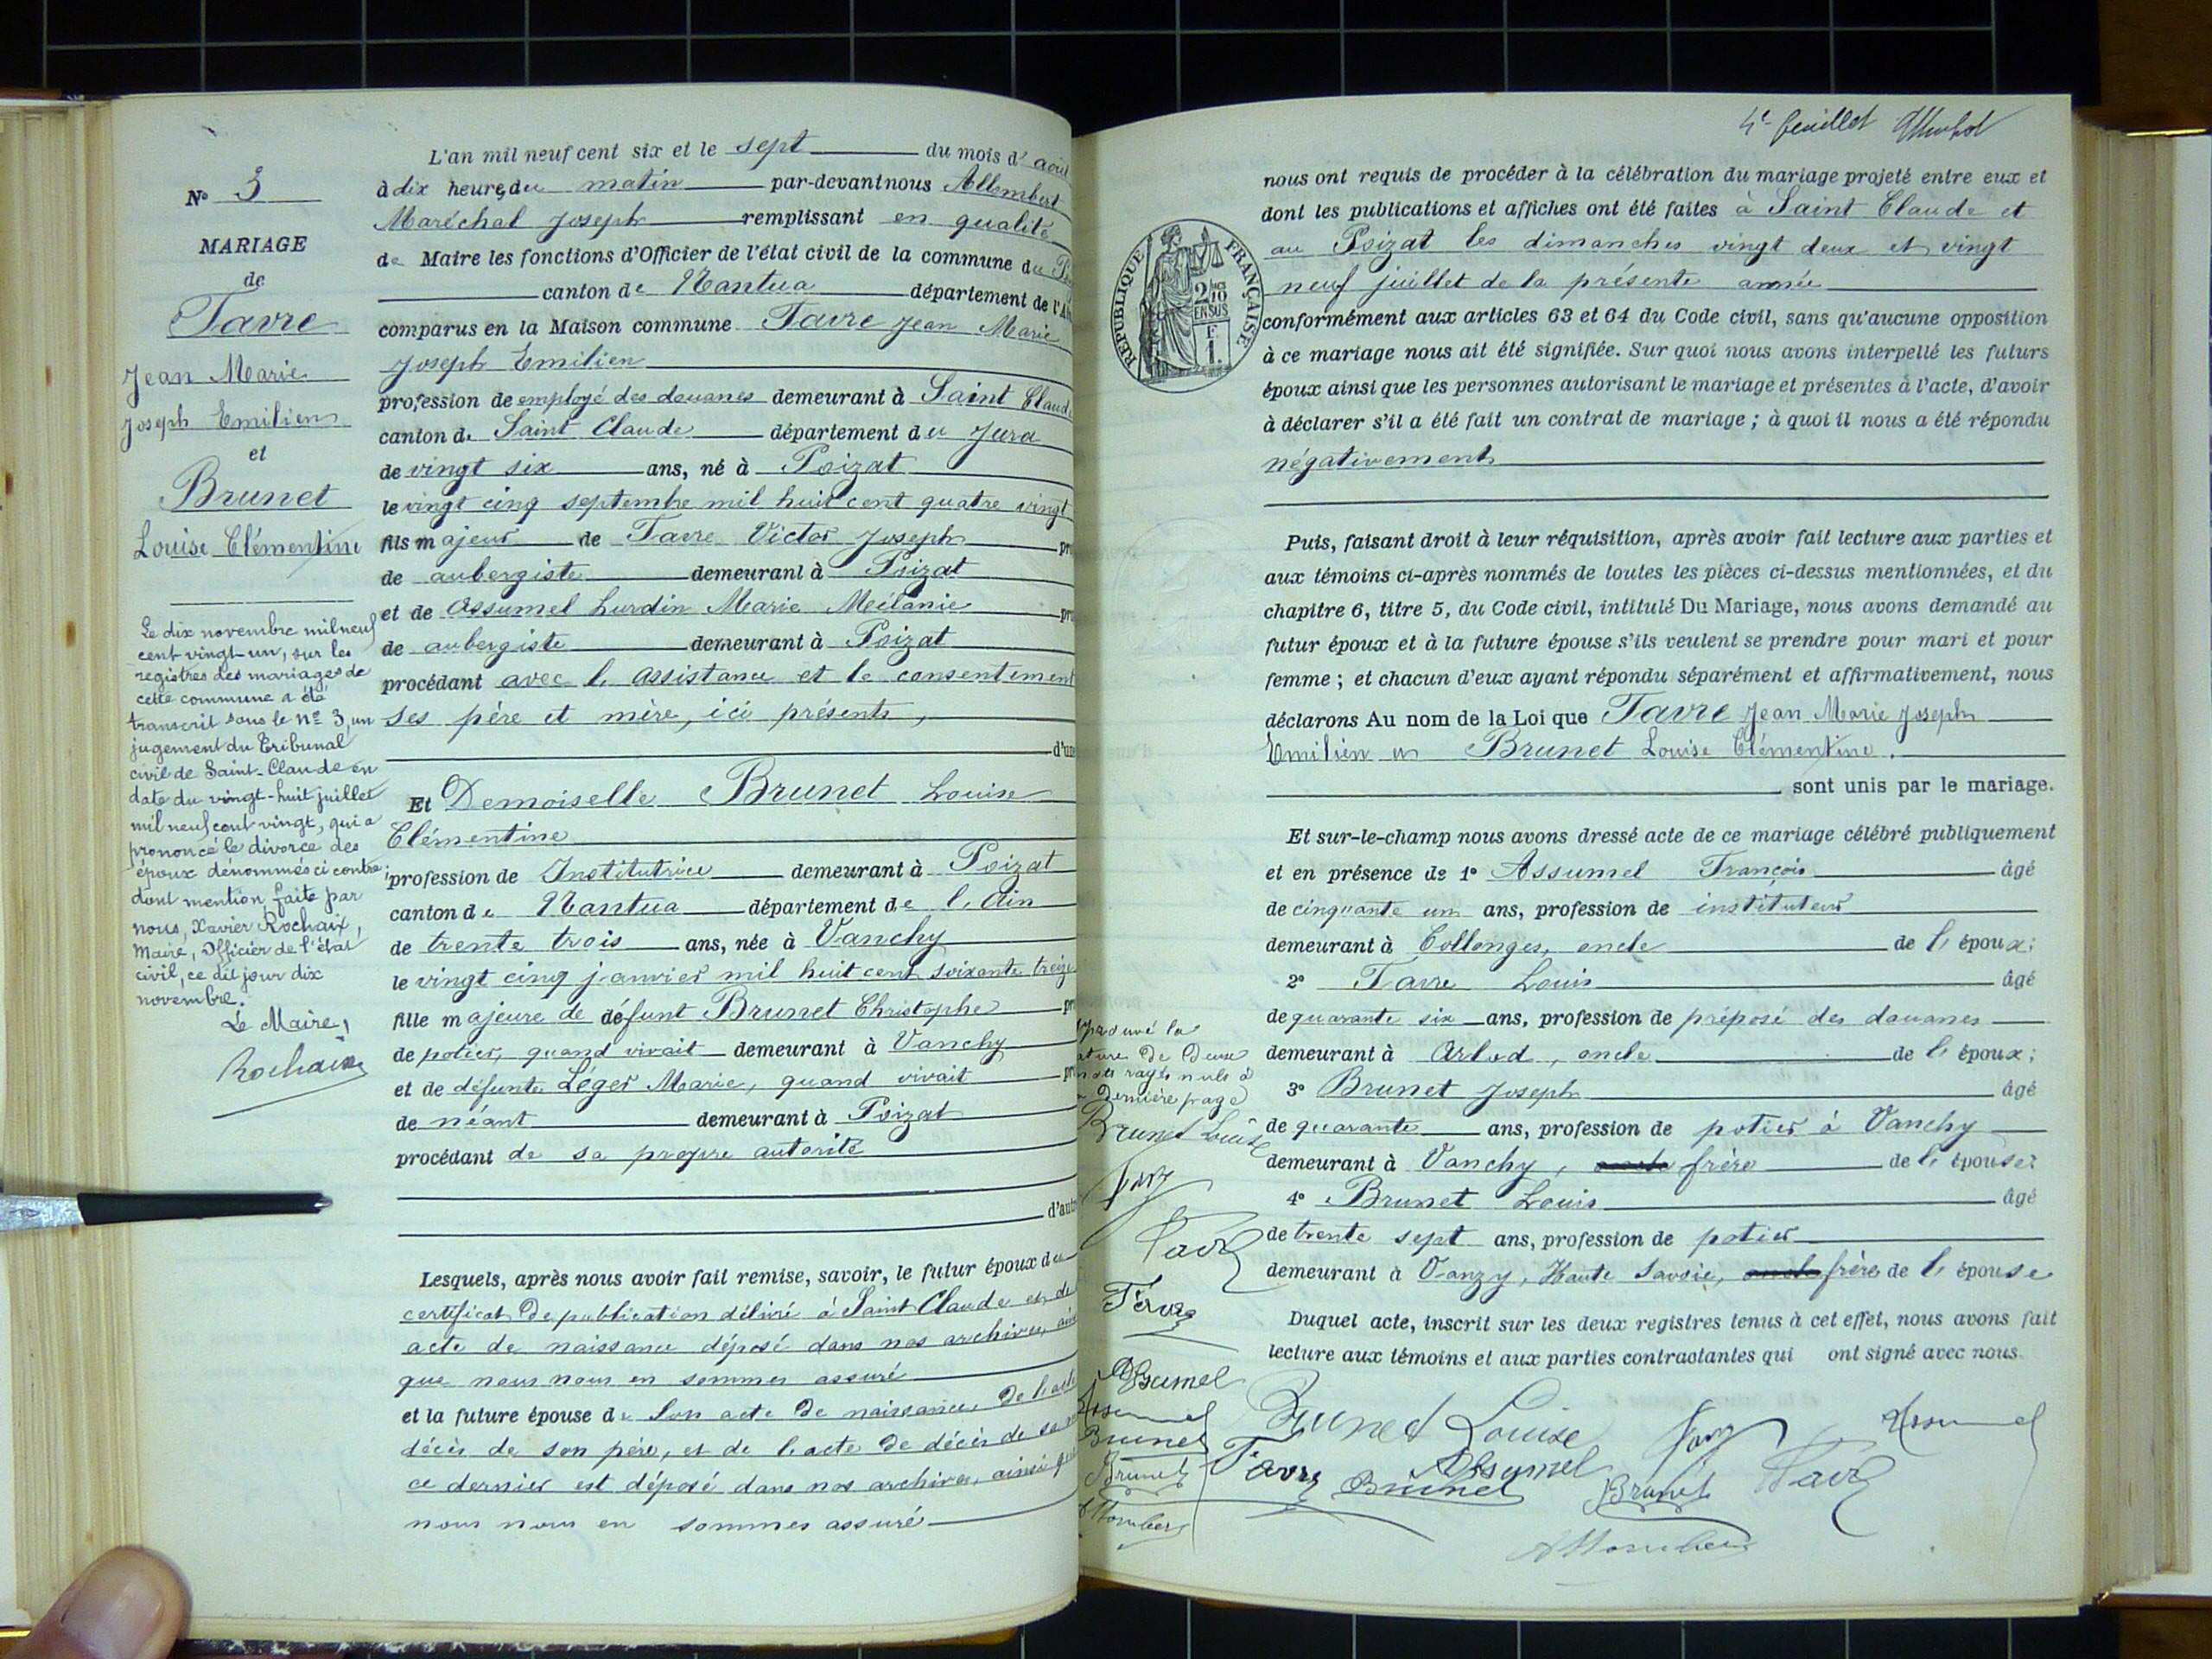 N° 3
MARIAGE
de
Favre
Jean Marie
Joseph Emilien
et
Brunet
Louise Clémentine
Le dix novembre mil neuf
cent vingt-un, sur les
registres des mariages de
cette commune a été
transcrit sous le n° 3, un
jugement du Tribunal
civil de Saint-Claude en
date du vingt-huit juillet
mil neuf cent vingt, qui a
prononcé le divorce des
époux dénommés ci contre
dont mention faite par
nous, Xavier Rochaix,
Maire, Officier de l'état
civil, ce dit jour dix
novembre.
Le Maire,
Rochaix
L'an mil neuf cent six et le sept du mois d'août
à dix heures du matin par-devant nous Allombert
Maréchal Joseph remplissant en qualité
de Maire les fonctions d'Officier de l'état civil de la commune du
canton de Nantua département de
comparus en la Maison commune Favre Jean Marie
Joseph Emilien
profession de employé des douanes demeurant à Saint Claude
canton de Saint Claude département du Jura
de vingt six ans, né à Poizat
le vingt cinq septembre mil huit cent quatre vingt
fils majeur de Favre Victor Joseph
de aubergiste demeurant à Poizat
et de Assumel Lurdin Marie Mélanie
de aubergiste demeurant à Poizat
procédant avec l'assistance et le consentement
ses père et mère, ici présents,
Et Demoiselle Brunet Louise
Clémentine
profession de Institutrice demeurant à Poizat
canton de Nantua département de l'Ain
de trente trois ans, née à Vanchy
le vingt cinq janvier mil huit cent soixante treize
fille majeure de défunt Brunet Christophe
de potier, quand vivait demeurant à Vanchy
et de défunte Léger Marie, quand vivait
de néant demeurant à Poizat
procédant de sa propre autorité
Lesquels, après nous avoir fait remise, savoir, le futur époux du
certificat de publication délivré à Saint Claude et de
acte de naissance déposé dans nos archives,
que nous nous en sommes assuré
et la future épouse de son acte de naissance, de l'acte
décès de son père, et de l'acte de décès de sa
ce dernier est déposé dans nos archives, ainsi que
nous nous en sommes assuré
4e feuillet
RÉPUBLIQUE FRANÇAISE
2/10 EN SUS
F
1.
nous ont requis de procéder à la célébration du mariage projeté entre eux et
dont les publications et affiches ont été faites à Saint Claude et
au Poizat les dimanches vingt deux et vingt
neuf juillet de la présente année
conformément aux articles 63 et 64 du Code civil, sans qu'aucune opposition
à ce mariage nous ait été signifiée. Sur quoi nous avons interpellé les futurs
époux ainsi que les personnes autorisant le mariage et présentes à l'acte, d'avoir
à déclarer s'il a été fait un contrat de mariage ; à quoi il nous a été répondu
négativement
Puis, faisant droit à leur réquisition, après avoir fait lecture aux parties et
aux témoins ci-après nommés de toutes les pièces ci-dessus mentionnées, et du
chapitre 6, titre 5, du Code civil, intitulé Du Mariage, nous avons demandé au
futur époux et à la future épouse s'ils veulent se prendre pour mari et pour
femme ; et chacun d'eux ayant répondu séparément et affirmativement, nous
déclarons Au nom de la Loi que Favre Jean Marie Joseph
Emilien et Brunet Louise Clémentine.
sont unis par le mariage.
Et sur-le-champ nous avons dressé acte de ce mariage célébré publiquement
et en présence de 1° Assumel François âgé
de cinquante un ans, profession de instituteur
demeurant à Collonges, oncle de l'époux;
2° Favre Louis âgé
de quarante six ans, profession de préposé des douanes
demeurant à Arlod, oncle de l'époux;
3° Brunet Joseph âgé
de quarante ans, profession de potier à Vanchy
demeurant à Vanchy, frère de l'épouse;
4° Brunet Louis âgé
de trente sept ans, profession de potier
demeurant à Vanzy, Haute Savoie, frère de l'épouse
Duquel acte, inscrit sur les deux registres tenus à cet effet, nous avons fait
lecture aux témoins et aux parties contractantes qui ont signé avec nous.
rature de deux
mots rayés nuls à
la dernière page
Brunet Louise
Favre
Assumel
Assumel
Brunet
Brunet
Brunet Louise
Assumel
Favre
Assumel
Brunet
Brunet
Favre